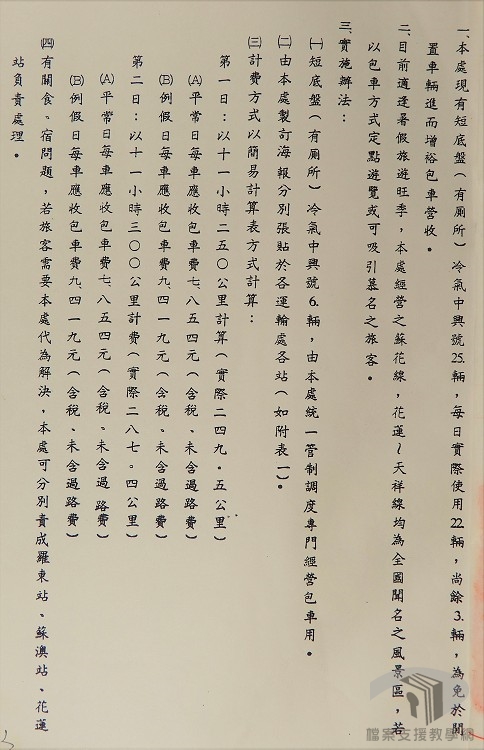 一、本處現有短底盤（有厠所）冷氣中興號25.輛，每日實際使用22輛，尚餘3.輛，為免於閒
置車輛進而增裕包車營收。
二、目前適逢暑假旅遊旺季，本處經營之蘇花線，花蓮～天祥線均為全國聞名之風景區，若
以包車方式定點遊覽或可吸引慕名之旅客。
三、實施辦法：
㈠短底盤（有厠所）冷氣中興號6.輛，由本處統一管制調度專門經營包車用。
㈡由本處製訂海報分別張貼於各運輸處各站（如附表一）。
㈢計費方式以簡易計算表方式計算：
第一日：以十一小時二五０公里計算（實際二四九．五公里）
(A)平常日每車應收包車費七、八五四元（含稅、未含過路費）
(B)例假日每車應收包車費九、四一九元（含稅、未含過路費）
第二日：以十一小時三００公里計費（實際二八七。四公里）
(A)平常日每車應收包車費七、八五四元（含稅、未含過路費）
(B)例假日每車應收包車費九、四一九元（含稅、未含過路費）
㈣有關食。宿問題，若旅客需要本處代為解決，本處可分別責成羅東站、蘇澳站、花蓮
站負責處理。
檔案支援教學網